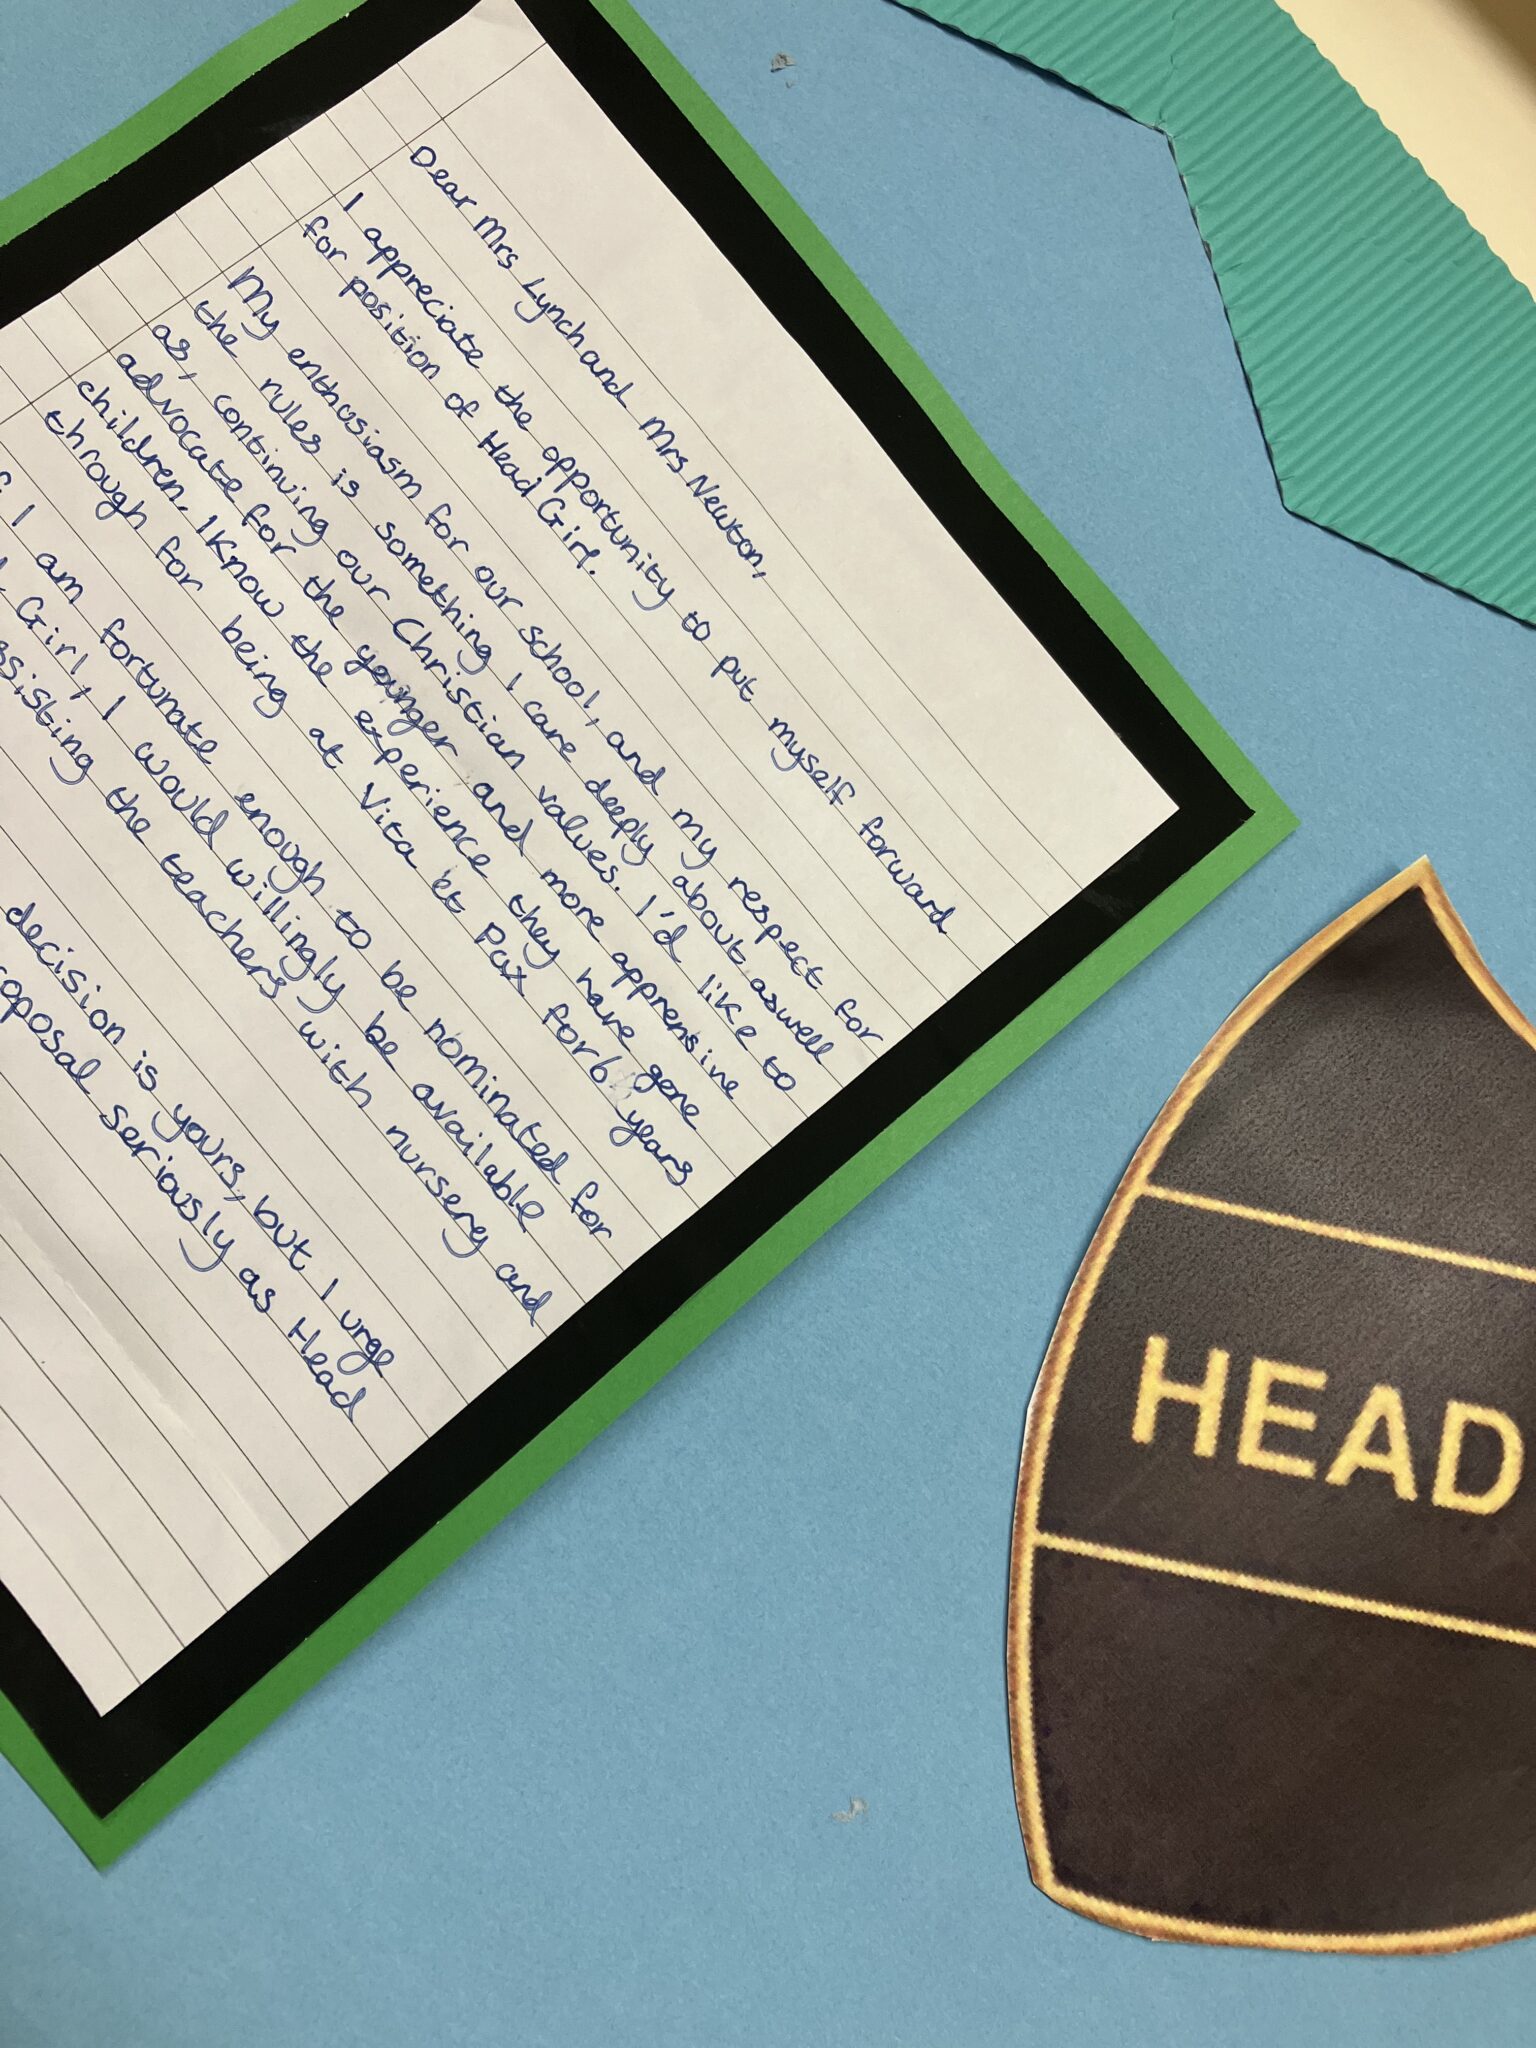 Dear Mrs Lynch and Mrs Newton,
I appreciate the opportunity to put myself forward
for position of Head Girl.
My enthusiasm for our school, and my respect for
the rules is something I care deeply about aswell
as, continuing our Christian values. I'd like to
advocate for the younger and more apprensive
children. I know the experience they have gone
through for being at Vita et Pax for 6 years
I am fortunate enough to be nominated for
Girl, I would willingly be available
assisting the teachers with nursery and
decision is yours, but I urge
proposal seriously as Head
HEAD